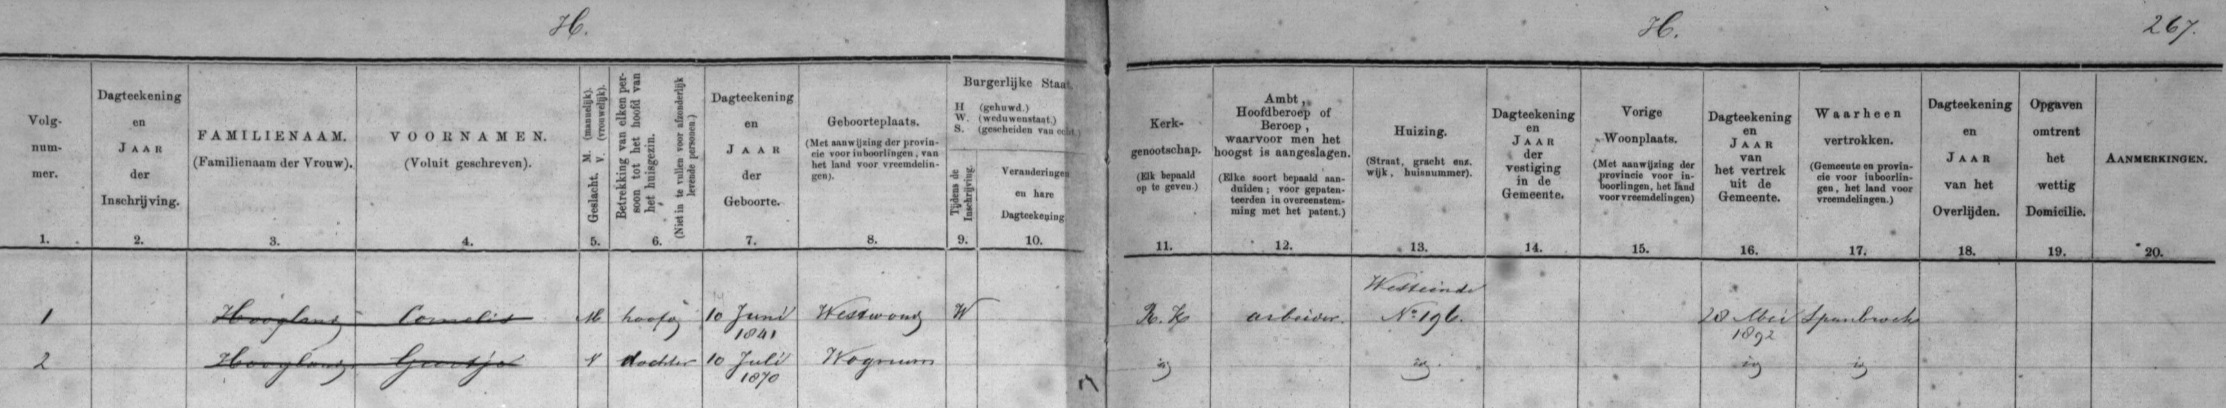 H.
H.
267.
Volg-
num-
mer.
Dagteekening
en
JAAR
der
Inschrijving.
FAMILIENAAM.
(Familienaam der Vrouw).
VOORNAMEN.
(Voluit geschreven).
Geslacht. M. (mannelijk).
V. (vrouwelijk).
Betrekking van elken per-
soon tot het hoofd van
het huisgezin.
(Niet in te vullen voor afzonderlijk
levende personen.)
Dagteekening
en
JAAR
der
Geboorte.
Geboorteplaats.
(Met aanwijzing der provin-
cie voor inboorlingen, van
het land voor vreemdelin-
gen).
Burgerlijke Staat.
H (gehuwd.)
W. (weduwenstaat.)
S. (gescheiden van echt.)
Tijdens de
Inschrijving.
Veranderingen
en hare
Dagteekening
Kerk-
genootschap.
(Elk bepaald
op te geven.)
Ambt,
Hoofdberoep of
Beroep,
waarvoor men het
hoogst is aangeslagen.
(Elke soort bepaald aan-
duiden; voor gepaten-
teerden in overeenstem-
ming met het patent.)
Huizing.
(Straat, gracht enz.
wijk, huisnummer).
Dagteekening
en
JAAR
der
vestiging
in de
Gemeente.
Vorige
Woonplaats.
(Met aanwijzing der
provincie voor in-
boorlingen, het land
voor vreemdelingen)
Dagteekening
en
JAAR
van
het vertrek
uit de
Gemeente.
Waarheen
vertrokken.
(Gemeente en provin-
cie voor inboorlin-
gen, het land voor
vreemdelingen.)
Dagteekening
en
JAAR
van het
Overlijden.
Opgaven
omtrent
het
wettig
Domicilie.
AANMERKINGEN.
1. 2. 3. 4. 5. 6. 7. 8. 9. 10. 11. 12. 13. 14. 15. 16. 17. 18. 19. 20.
Westeinde
1 Hoogland Cornelis M hoofd 10 Juni Westwoud W R.K arbeider. No 196. 28 Mei Spanbroek
1841 1892
2 Hoogland Geertje V dochter 10 Juli Wognum id id id id
1870